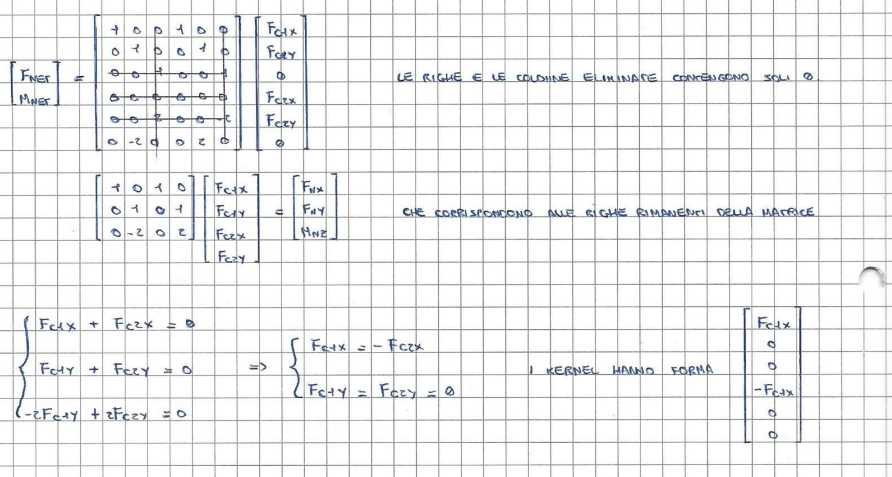 [FNET MNET] = [1 0 0 1 0 0] [FC1X]
[0 1 0 0 1 0] [FC1Y]
[0 0 1 0 0 1] [0]
[0 0 0 0 0 0] [FC2X]
[0 0 2 0 0 -2] [FC2Y]
[0 -2 0 0 2 0] [0]
LE RIGHE E LE COLONNE ELIMINATE CONTENGONO SOLI 0
[1 0 1 0] [FC1X] = [FNX]
[0 1 0 1] [FC1Y] [FNY]
[0 -2 0 2] [FC2X] [MNZ]
[FC2Y]
CHE CORRISPONDONO ALLE RIGHE RIMANENTI DELLA MATRICE
FC1X + FC2X = 0
FC1Y + FC2Y = 0
-2FC1Y + 2FC2Y = 0
=>
FC1X = - FC2X
FC1Y = FC2Y = 0
I KERNEL HANNO FORMA
[FC1X]
[0]
[0]
[-FC1X]
[0]
[0]